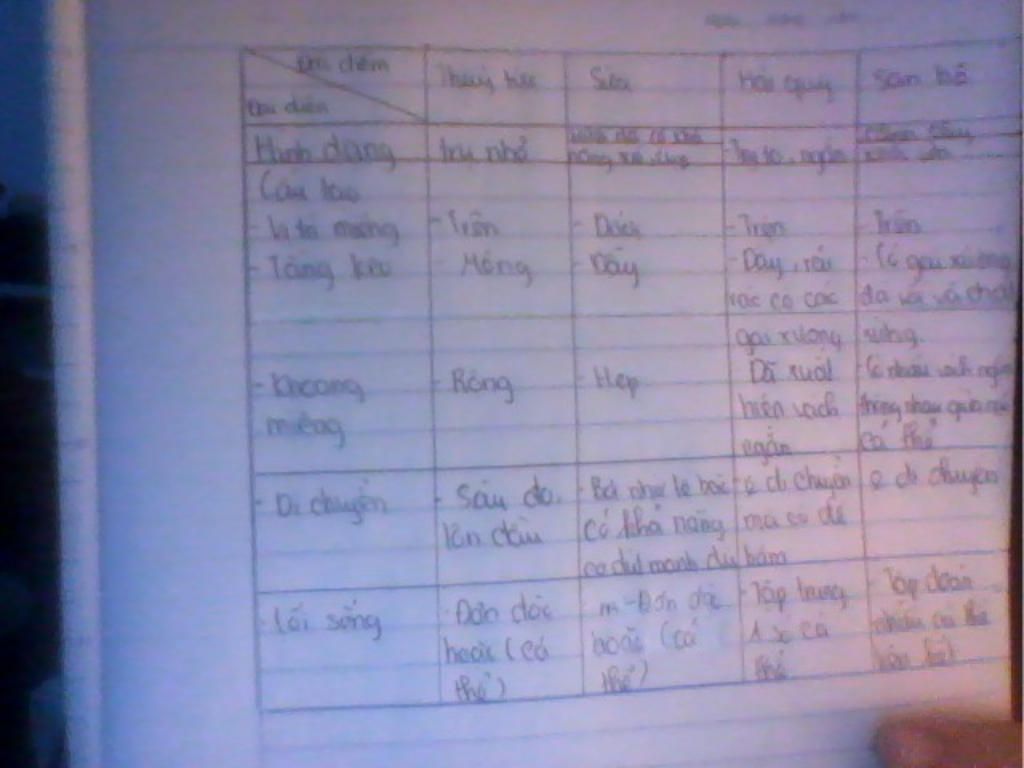 điểm
Thuỷ tức
Sứa
Hải quỳ
San hô
Hình dạng
trụ nhỏ
Trụ to, ngắn
Cấu tạo
- Vị trí miệng
- Trên
- Dưới
- Trên
- Trên
- Tầng keo
- Mỏng
- Dày
- Dày, rải
- Có gai xương
rác có các
đá vôi và chất
gai xương
sừng.
- Khoang
- Rộng
- Hẹp
Đã xuất
- Có nhiều vách ngăn
miệng
hiện vách
thông nhau giữa các
ngăn
cá thể
- Di chuyển
- Sâu đo,
- Bơi nhờ tế bào
di chuyển
di chuyển
lộn đầu
có khả năng
mà có đế
co rút mạnh dù
bám
- Lối sống
- Đơn độc
- Đơn độc
- Tập trung
- Tập đoàn
hoặc (cá
hoặc (cá
1 số cá
nhiều cá thể
thể)
thể)
thể